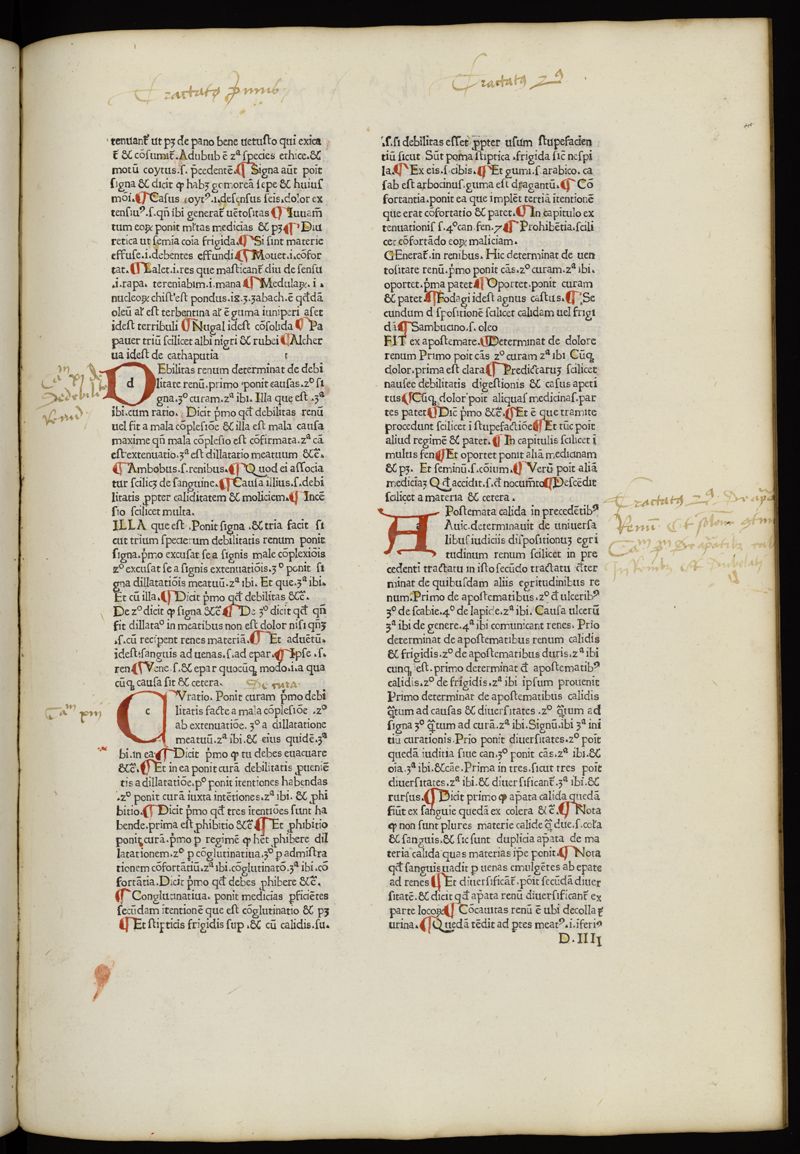 Tractatꝰ p̄imus
Tractatꝰ 2ꝰ
tenuant᷑ ut pꝫ de pano bene uetusto qui exica
t᷑ &c cōsumit᷑.Adubub ē zᵃ species ethice.&c
motū coytus.s. p̄cedentē.¶ Signa aūt poit
signa &c dicit ꝙ habꝫ gomorea sepe &c huius
mōi.¶ Casus coytꝰ.i.descensus seis.dolor ex
tensiuꝰ.s.qn̄ ibi generat᷑ uētositas ¶ Iuuam̄
tum eoꝝ ponit mltas medicīas &c pꝫ ¶ Diu
retica ut semia coia frigida.¶ Si sint materie
effuse.i.debentes effundi ¶ Mouet.i.cōfor
tat.¶ Lalet.i.res que masticant᷑ diu de sensu
.i.rapa. tereniabim.i.mana ¶ Medulaꝝ. i .
nucleoꝝ chist᷑ est pondus.18.3.zabach.ē qd̄dā
oleū al᷑ est terbentina al᷑ ē guma iuniperi aset
idest terribuli ¶ Nugal idest cōsolida ¶ Pa
pauer triū scilicet albi nigri &c rubei ¶ Alcher
ua idest de cathaputia
DEbilitas renum determinat de debi
litate renū.primo ponit causas.zꝰ si
gna.3ꝰ curam.zᵃ ibi. Illa que est .3ᵃ
ibi.cum ratio. Dicit pm̄o qd̄ debilitas renū
uel fit a mala cōplesiōe &c illa est mala causa
maxime qn̄ mala cōplesio est cōfirmata.zᵃ cā
est extenuatio.3ᵃ est dillatatio meatuum &cē.
¶ Ambobus.s.renibus.¶ Quod ei associa
tur scilicꝫ de sanguine.¶ Causa illius.s.debi
litatis ꝓpter caliditatem &c moliciem.¶ Incē
sio scilicet multa.
ILLA que est .Ponit signa .&c tria facit si
cut trium specierum debilitatis renum ponit
signa.pm̄o excusat se a signis male cōplexiōis
zꝰ excusat se a signis extenuatiōis.3ꝰ ponit si
gna dillatatiōis meatuū.zᵃ ibi. Et que.3ᵃ ibi.
Et cū illa.¶ Dicit pm̄o qd̄ debilitas &cē.
De zꝰ dicit ꝙ signa &cē ¶ De 3ꝰ dicit qd̄ qn̄
fit dillataꝰ in meatibus non est dolor nisi qn̄ꝫ
.s.cū recipent renes materiā.¶ Et aduētū.
idest sanguis ad uenas.s.ad epar.¶ Ipse .s.
ren ¶ Vene .s.&c epar quocūꝗ modo.i.a qua
cūꝗ causa sit &c cetera.
De cura
CVratio. Ponit curam pm̄o debi
litatis facte a mala cōplesiōe .zꝰ
ab extenuatiōe. 3ꝰ a dillatatione
meatuū.zᵃ ibi. &c eius quidē.3ᵃ
bi.in ea ¶ Dicit pm̄o ꝙ tu debes euacuare
&cē.¶ Et in ea ponit curā debilitatis ꝓueniē
tis a dillatatiōe.pꝰ ponit itentiones habendas
.zꝰ ponit curā iuxta intētiones.zᵃ ibi. &c ꝓhi
bitio.¶ Dicit pm̄o qd̄ tres itentiōes sunt ha
bende.prima est ꝓhibitio &cē ¶ Et ꝓhibitio
ponit curā.pm̄o p regimē ꝙ h̄et ꝓhibere dil
latationem.zꝰ p cōglutinatiua.3ꝰ p admistra
tionem cōfortātiū.zᵃ ibi.cōglutinatō.3ᵃ ibi.cō
fortātia.Dicit pm̄o qd̄ debes ꝓhibere &cē.
¶ Conglutinatiua. ponit medicīas ꝑficiētes
secūdam itentionē que est cōglutinatio &c pꝫ
¶ Et stipticis frigidis sup .&c cū calidis.su.
.s.si debilitas esset ꝓpter usum stupefacien
tiū sicut Sūt poma stiptica .frigida sic nespi
la.¶ Ex eis.s.cibis.¶ Et gumi.s.arabico. ca
sab est arbocinus.guma est dragantū.¶ Cō
fortantia.ponit ea que implēt tertiā itentionē
que erat cōfortatio &c patet.¶ In capitulo ex
tenuationis s.4ꝰcan.fen.7 ¶ Prohibētia.scili
cet cōfortādo eoꝝ maliciam.
GEnerat᷑.in renibus. Hic determinat de uen
tositate renū.pm̄o ponit cās.zꝰ curam.zᵃ ibi.
oportet.pm̄a patet ¶ Oportet.ponit curam
&c patet ¶ Fodagi idest agnus castus.¶ Se
cundum dispositionē scilicet calidam uel frigi
dā ¶ Sambucino.s. oleo
FIT ex apostemate.¶ Determinat de dolore
renum Primo poit cās zꝰ curam zᵃ ibi Cūꝗ
dolor.prima est clara ¶ Predictarū scilicet
nausee debilitatis digestionis &c casus apeti
tus ¶ Cūꝗ dolor poit aliquas medicinas.par
tes patet ¶ Dic̄ pm̄o &cē.¶ Et ē que tramite
procedunt scilicet i stupefactiōe ¶ Et tūc poit
aliud regimē &c patet. ¶ In capitulis scilicet i
multus fen ¶ Et oportet ponit aliā medicinam
&c pꝫ. Et seminū.s.cōium.¶ Verū poit aliā
medicīaꝫ Qd̄ accidit.s.d̄ nocumēto ¶ Descēdit
scilicet a materia &c cetera .
APostemata calida in precedētibꝰ
Auic.determinauit de uniuersa
libus iudiciis dispositionuꝫ egri
tudinum renum scilicet in pre
cedenti tractatu in isto secūdo tractatu dt̄er
minat de quibusdam aliis egritudinibus re
num.Primo de apostematibus.zꝰ d̄ ulceribꝰ
3ꝰ de scabie.4ꝰ de lapide.zᵃ ibi. Causa ulcerū
3ᵃ ibi de genere.4ᵃ ibi comunicant renes. Prio
determinat de apostematibus renum calidis
&c frigidis.zꝰ de apostematibus duris.zᵃ ibi
cunꝗ est. primo determinat d̄ apostematibꝰ
calidis.zꝰ de frigidis.zᵃ ibi ipsum prouenit
Primo determinat de apostematibus calidis
q̄tum ad causas &c diuersitates .zꝰ q̄tum ad
signa 3ꝰ q̄tum ad curā.zᵃ ibi.Signū.ibi 3ᵃ ini
tiū curationis.Prio ponit diuersitates.zꝰ poit
quedā iuditia siue can.3ꝰ ponit cās.zᵃ ibi.&c
oīa.3ᵃ ibi.&c cāe.Prima in tres.sicut tres poit
diuersitates.zᵃ ibi.&c diuersificant᷑.3ᵃ ibi.&c
rursus.¶ Dicit primo ꝙ ap̄ata calida quedā
fiūt ex sanguie quedā ex colera &c ē.¶ Nota
ꝙ non sunt plures materie calide q̄ due.s.col̄a
&c sanguis.&c sic sunt duplicia ap̄ata de ma
teria calida quas materias ip̄e ponit.¶ Nota
qd̄ sanguis uadit p uenas emulgētes ab epate
ad renes ¶ Et diuersificāt᷑.pōit secūdā diuer
sitatē.&c dicit qd̄ ap̄ata renū diuersificant᷑ ex
parte locoꝝ ¶ Cōcauitas renū ē ubi decollat᷑
urina.¶ Quedā tēdit ad ptes meatꝰ.i.iferiꝰ
D.IIII